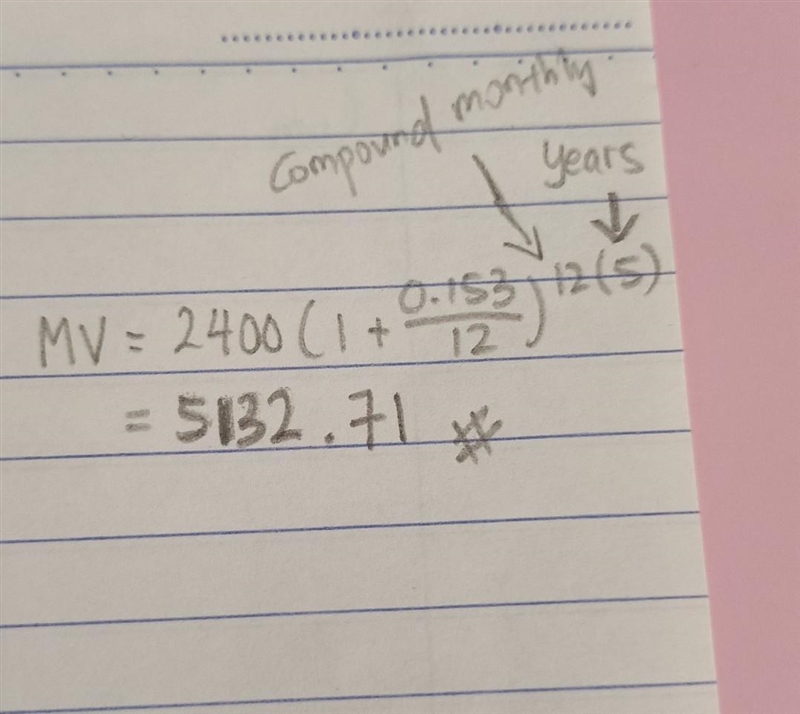 Compound monthly
years
MV = 2400 (1 + 0.153/12)^12(5)
= 5132.71 **